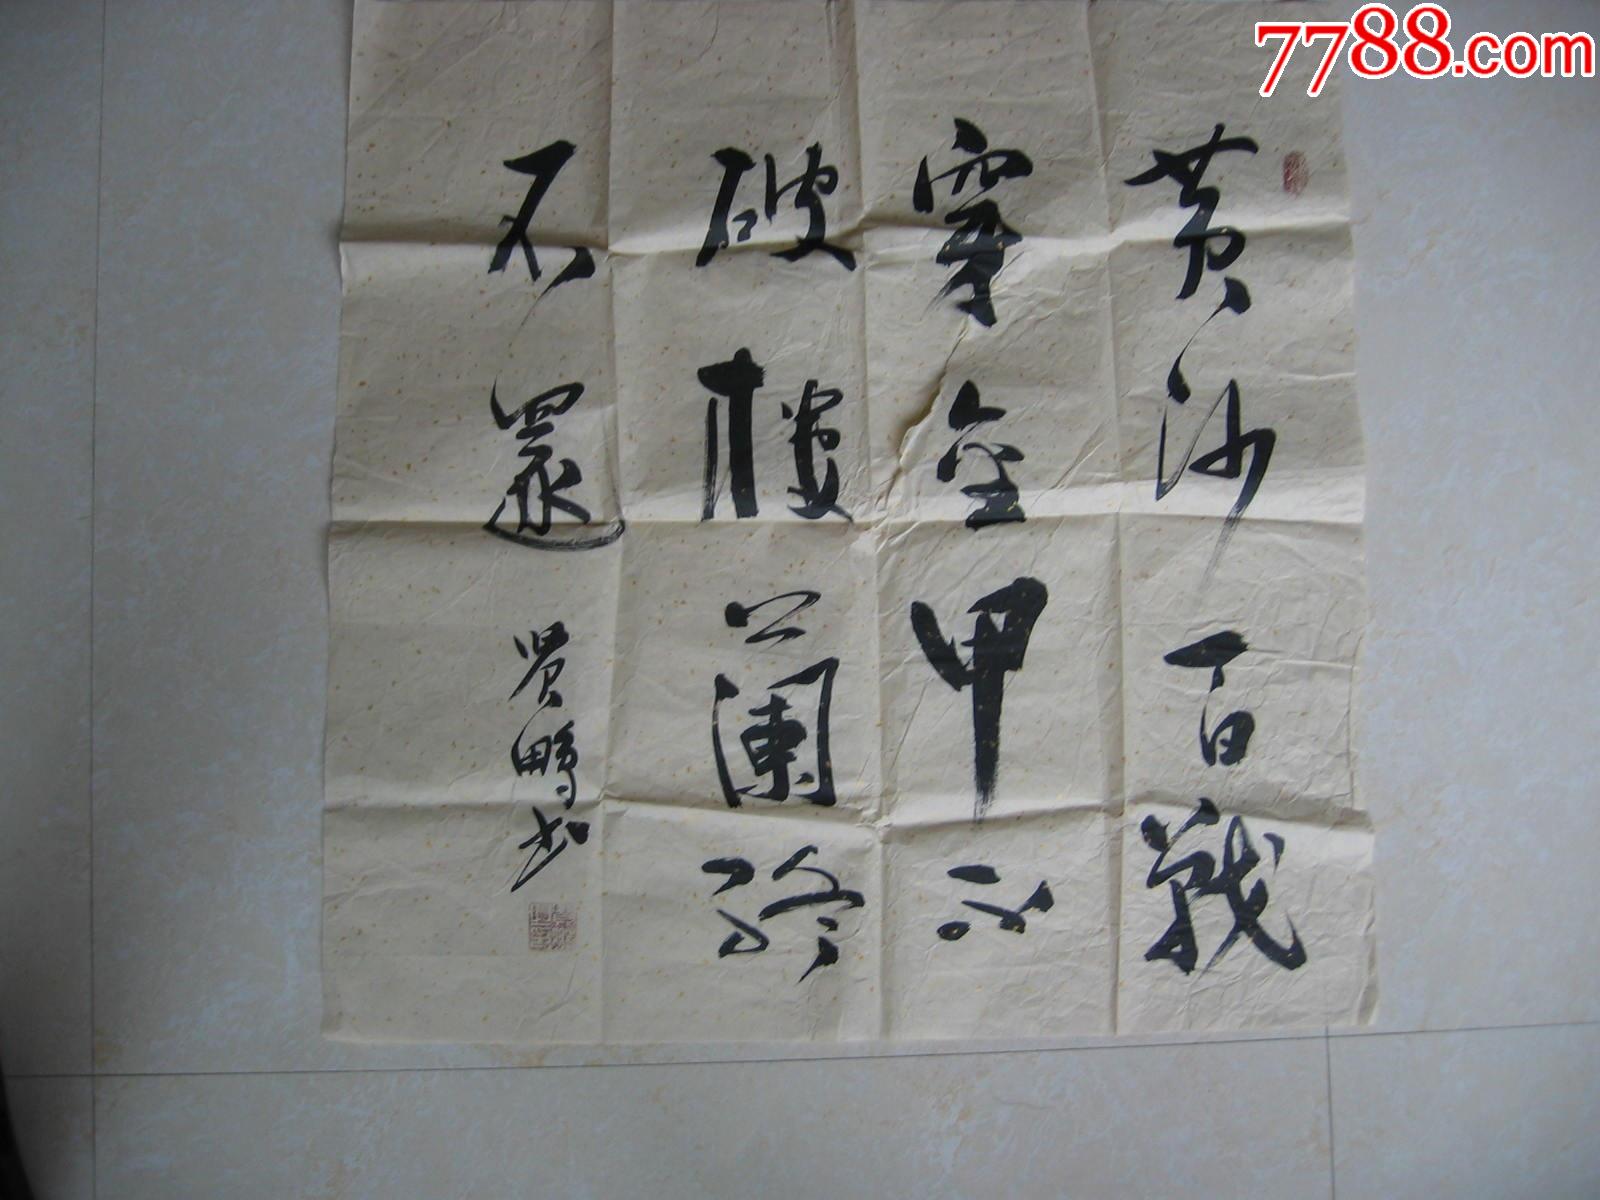 7788.com
黄沙百戰
穿金甲不
破樓蘭終
不還
贤鵬书